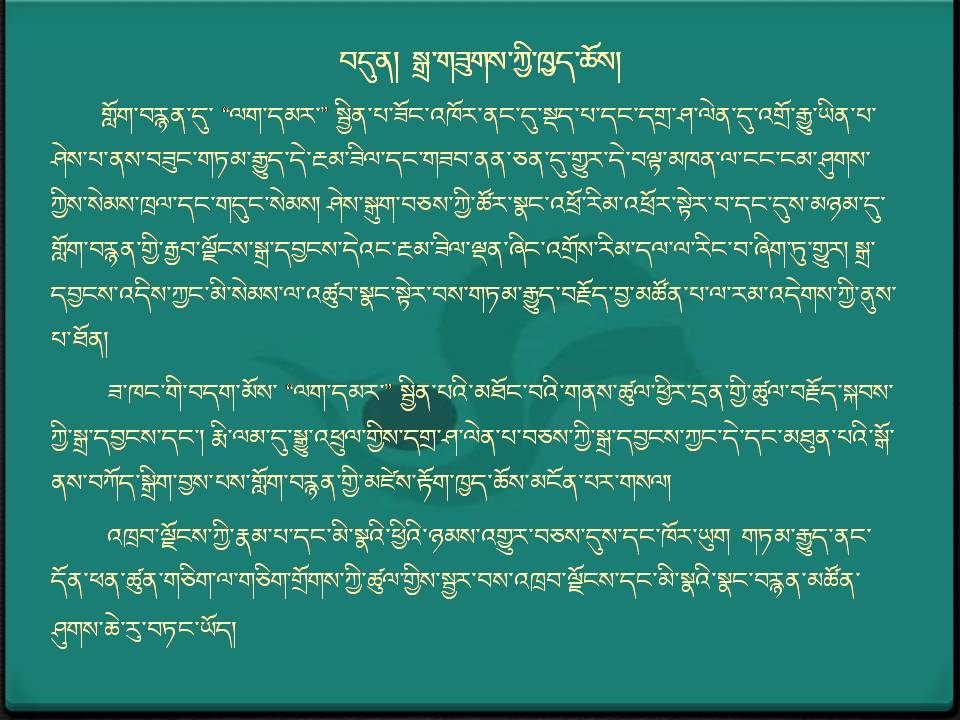 བདུན། སྒྲ་གཟུགས་ཀྱི་ཁྱད་ཆོས།
གློག་བརྙན་དུ་ “ལག་དམར་” སྦྱིན་པ་ཟོང་འཁོར་ནང་དུ་སྡད་པ་དང་དགྲ་ཤ་ལེན་དུ་འགྲོ་རྒྱུ་ཡིན་པ་
ཤེས་པ་ནས་བཟུང་གཏམ་རྒྱུད་དེ་རྔམ་ཟིལ་དང་གཟབ་ནན་ཅན་དུ་གྱུར་དེ་བལྟ་མཁན་ལ་ངང་ངམ་ཤུགས་
ཀྱིས་སེམས་ཁྲལ་དང་གདུང་སེམས། ཤེས་སྒུག་བཅས་ཀྱི་ཚོར་སྣང་འཕྲོ་རིམ་འཕྲོར་སྟེར་བ་དང་དུས་མཉམ་དུ་
གློག་བརྙན་གྱི་རྒྱབ་ལྗོངས་སྒྲ་དབྱངས་དེའང་རྔམ་ཟིལ་ལྡན་ཞིང་འགྲོས་རིམ་དལ་ལ་རིང་བ་ཞིག་ཏུ་གྱུར། སྒྲ་
དབྱངས་འདིས་ཀྱང་མི་སེམས་ལ་འཚུབ་སྣང་སྟེར་བས་གཏམ་རྒྱུད་བརྗོད་བྱ་མཚོན་པ་ལ་རམ་འདེགས་ཀྱི་ནུས་
པ་ཐོན།
ཟ་ཁང་གི་བདག་མོས་ “ལག་དམར་” སྦྱིན་པའི་མཐོང་བའི་གནས་ཚུལ་ཕྱིར་དྲན་གྱི་ཚུལ་བརྗོད་སྐབས་
ཀྱི་སྒྲ་དབྱངས་དང་། རྨི་ལམ་དུ་སྒྱུ་འཕྲུལ་གྱིས་དགྲ་ཤ་ལེན་པ་བཅས་ཀྱི་སྒྲ་དབྱངས་ཀྱང་དེ་དང་མཐུན་པའི་སྒོ་
ནས་བཀོད་སྒྲིག་བྱས་པས་གློག་བརྙན་གྱི་མཛེས་རྟོག་ཁྱད་ཆོས་མངོན་པར་གསལ།
འཁྲབ་ལྗོངས་ཀྱི་རྣམ་པ་དང་མི་སྣའི་ཕྱིའི་ཉམས་འགྱུར་བཅས་དུས་དང་ཁོར་ཡུག གཏམ་རྒྱུད་ནང་
དོན་ཕན་ཚུན་གཅིག་ལ་གཅིག་གྲོགས་ཀྱི་ཚུལ་གྱིས་སྦྱར་བས་འཁྲབ་ལྗོངས་དང་མི་སྣའི་སྣང་བརྙན་མཚོན་
ཤུགས་ཆེ་རུ་བཏང་ཡོད།